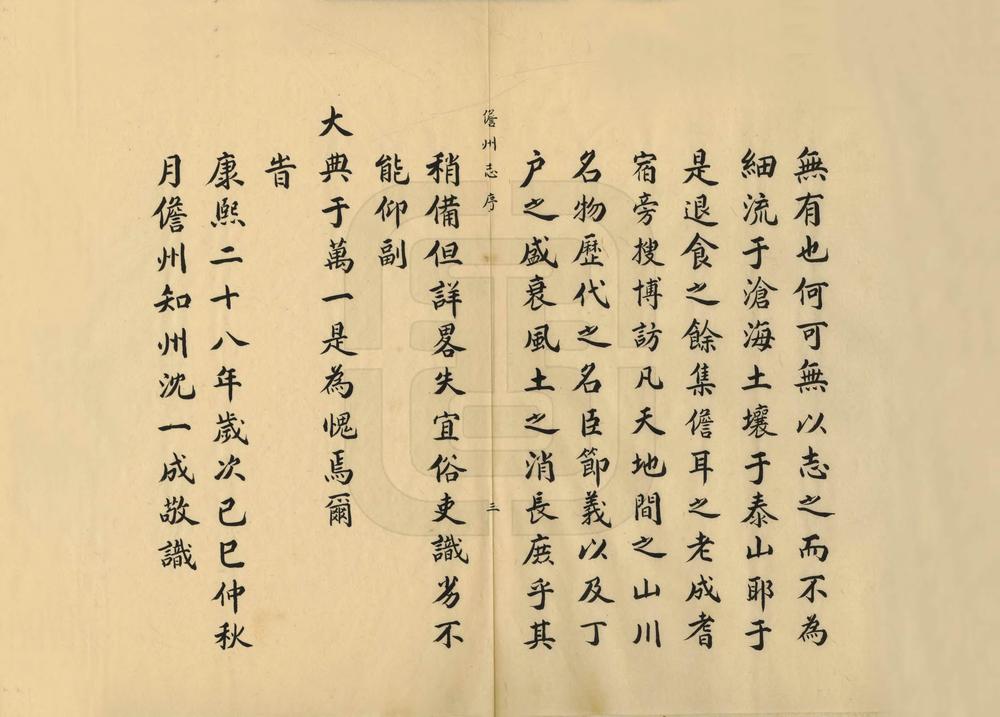 無有也何可無以志之而不為
細流于滄海土壤于泰山耶于
是退食之餘集儋耳之老成耆
宿旁搜博訪凡天地間之山川
名物歷代之名臣節義以及丁
户之盛衰風土之消長庶乎其
儋州志序
三
稍備但詳畧失宜俗吏識劣不
能仰副
大典于萬一是為愧焉爾
旹
康熙二十八年歲次己巳仲秋
月儋州知州沈一成敬識